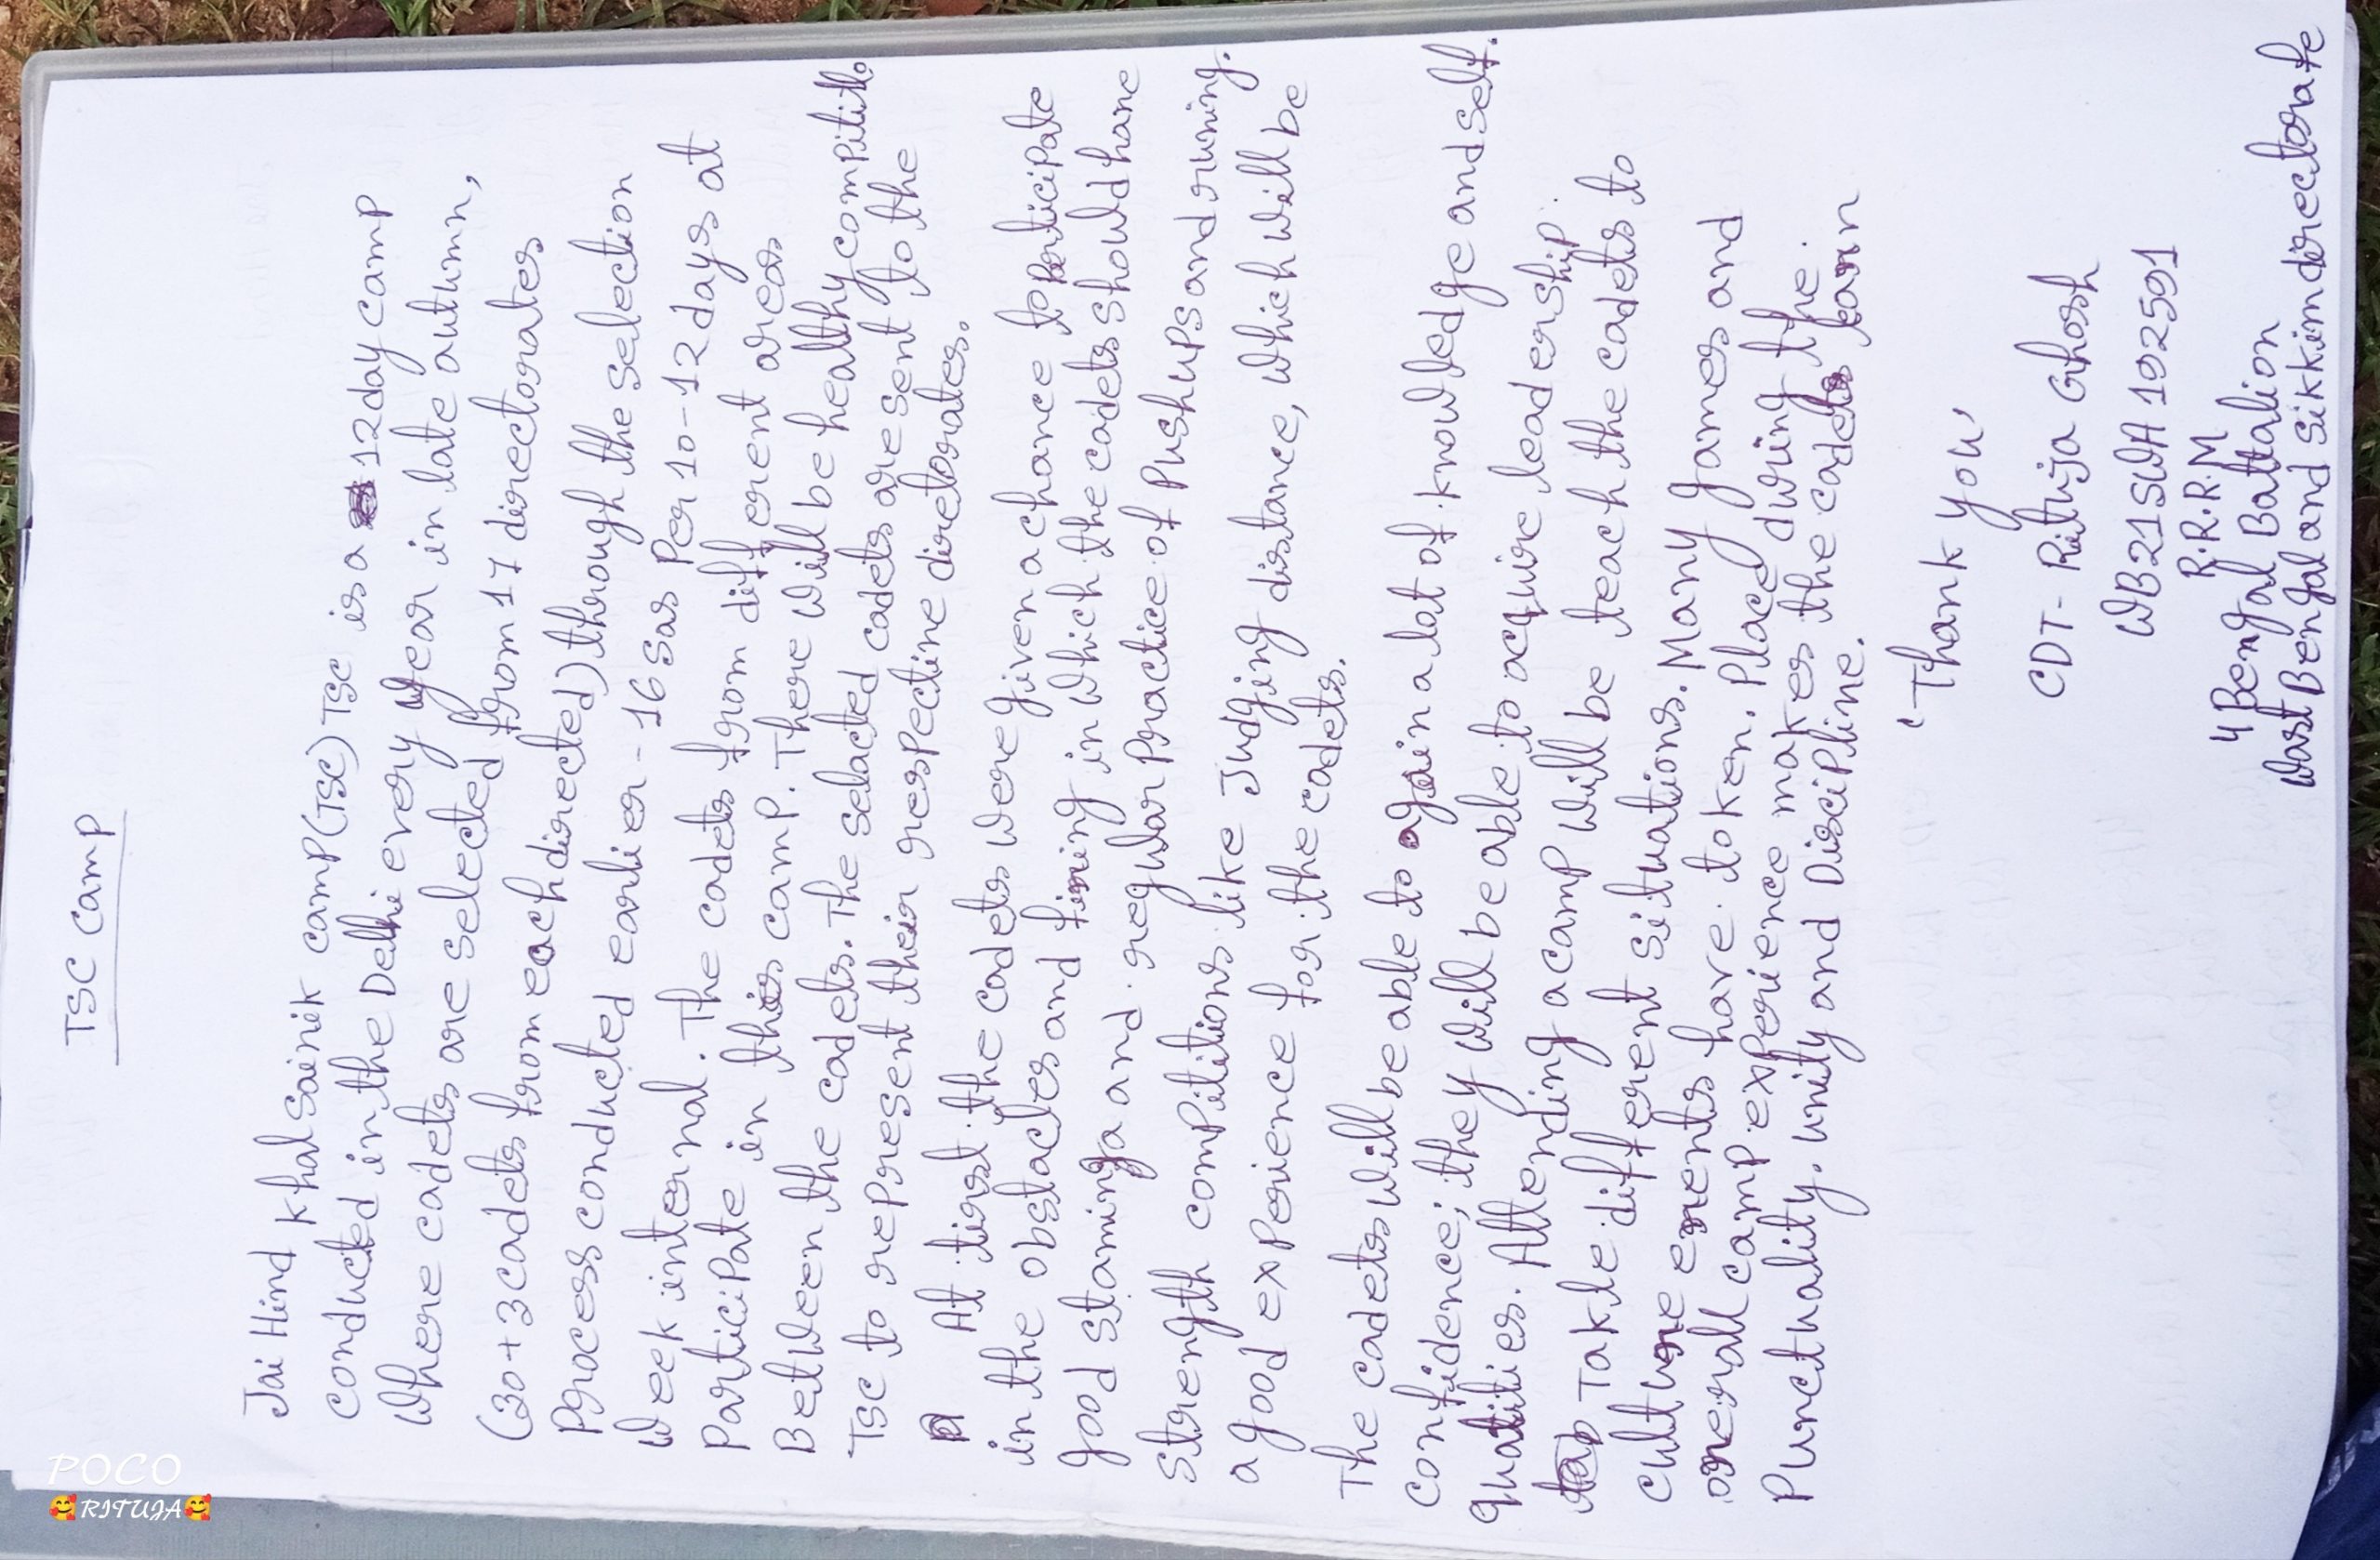 TSC Camp
Jai Hind Khal Sainik camp (TSC) TSC is a 12 day camp
conducted in the Delhi every year in late autumn,
where cadets are selected from 17 directorates
(30+3 cadets from each directed) through the selection
Process conducted earlier - 16 sas Per 10-12 days at
week internal. The cadets from different areas
Participate in this camp. There will be healthy compitito
Between the cadets. The selacted cadets are sent to the
TSC to represent their respective diretorates.
At first the cadets were given a chance to Perticipate
in the obstacles and firing in which the cadets should have
good staminga and regular Practice of Pushups and runing.
Strength compititions like Judging distance, which will be
a good experience for the cadets.
The cadets will be able to gain a lot of knowledge and self.
Confidence; they will be able to acquire leadership
qualities. Attending a camp will be teach the cadets to
Takle different situations. Many games and
culture events have taken. Placed during the.
overall camp experience makes the cadets learn
Punctuality, unity and Discipline.
'Thank you,
CDT - Rituja Ghosh
WB21SWA192591
R.R.R.M
4 Bengal Battalion
West Bengal and Sikkim directorate
POCO
🥰RITUJA🥰